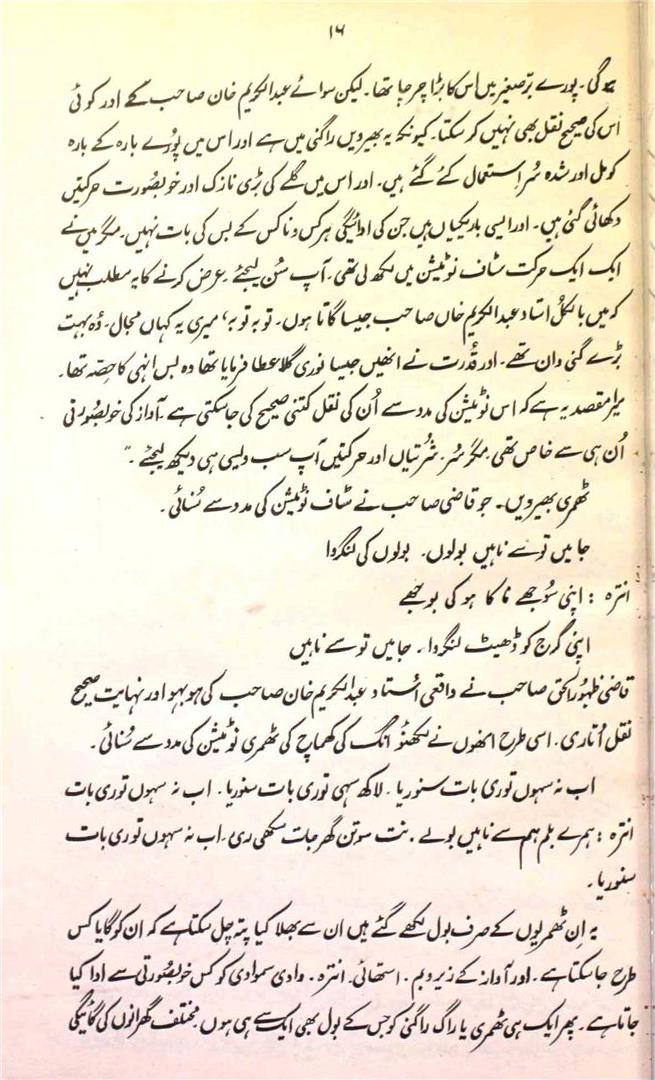 ۱۶
ہوگی۔ پورے برِّصغیر میں اس کا بڑا چرچا تھا۔ لیکن سوائے عبدالکریم خان صاحب کے اور کوئی
اس کی صحیح نقل بھی نہیں کر سکتا۔ کیونکہ یہ بھیرویں راگنی میں ہے اور اس میں پُورے بارہ کے بارہ
کومل اور شدھ سُر استعمال کئے گئے ہیں۔ اور اس میں گلے کی بڑی نازک اور خوبصُورت حرکتیں
دکھائی گئی ہیں۔ اور ایسی باریکیاں ہیں جن کی ادائیگی ہر کس و ناکس کے بس کی بات نہیں۔ مگر میں نے
ایک ایک حرکت سٹاف نوٹیشن میں لکھ لی تھی۔ آپ سُن لیجئے۔ عرض کرنے کا یہ مطلب نہیں
کہ میں بالکُل استاد عبدالکریم خاں صاحب جیسا گاتا ہوں۔ توبہ توبہ، میری یہ کہاں مجال۔ وُہ بہت
بڑے گنی وان تھے۔ اور قُدرت نے انھیں جیسا نوری گلا عطا فرمایا تھا وہ بس انہی کا حِصّہ تھا۔
میرا مقصد یہ ہے کہ اس نوٹیشن کی مدد سے اُن کی نقل کتنی صحیح کی جا سکتی ہے۔ آواز کی خوبصُورتی
اُن ہی سے خاص تھی۔ مگر سُر۔ سُرتیاں اور حرکتیں آپ سب ویسی ہی دیکھ لیجئے۔"
ٹھمری بھیرویں۔ جو قاضی صاحب نے سٹاف نوٹیشن کی مدد سے سُنائی۔
جا میں توسے ناہیں بولوں۔ بولوں کی لنگروا
انترہ : اپنی سُوجھے نا کا ہو کی بوجھے
اپنی گرج کو ڈھیٹ لنگروا۔ جا میں توسے ناہیں
قاضی ظہورُالحق صاحب نے واقعی اُستاد عبدالکریم خان صاحب کی ہوبہو اور نہایت صحیح
نقل اُتاری۔ اسی طرح انھوں نے لکھنؤ انگ کی کھماچ کی ٹھمری نوٹیشن کی مدد سے سُنائی۔
اب نہ سہوں توری بات سنوریا۔ لاکھ سہی توری بات سنوریا۔ اب نہ سہوں توری بات
انترہ : ہمرے بلم ہم سے ناہیں بولے۔ نت سوتن گھر جات سکھی ری۔ اب نہ سہوں توری بات
سنوریا۔
یہ اِن ٹھمریوں کے صرف بول لکھے گئے ہیں ان سے بھلا کیا پتہ چل سکتا ہے کہ ان کو گایا کس
طرح جا سکتا ہے۔ اور آواز کے زیر و بم۔ استھائی۔ انترہ۔ وادی سموادی کو کس خوبصُورتی سے ادا کیا
جاتا ہے۔ پھر ایک ہی ٹھمری یا راگ راگنی کو جس کے بول بھی ایک سے ہی ہوں۔ مختلف گھرانوں کی گائیگی